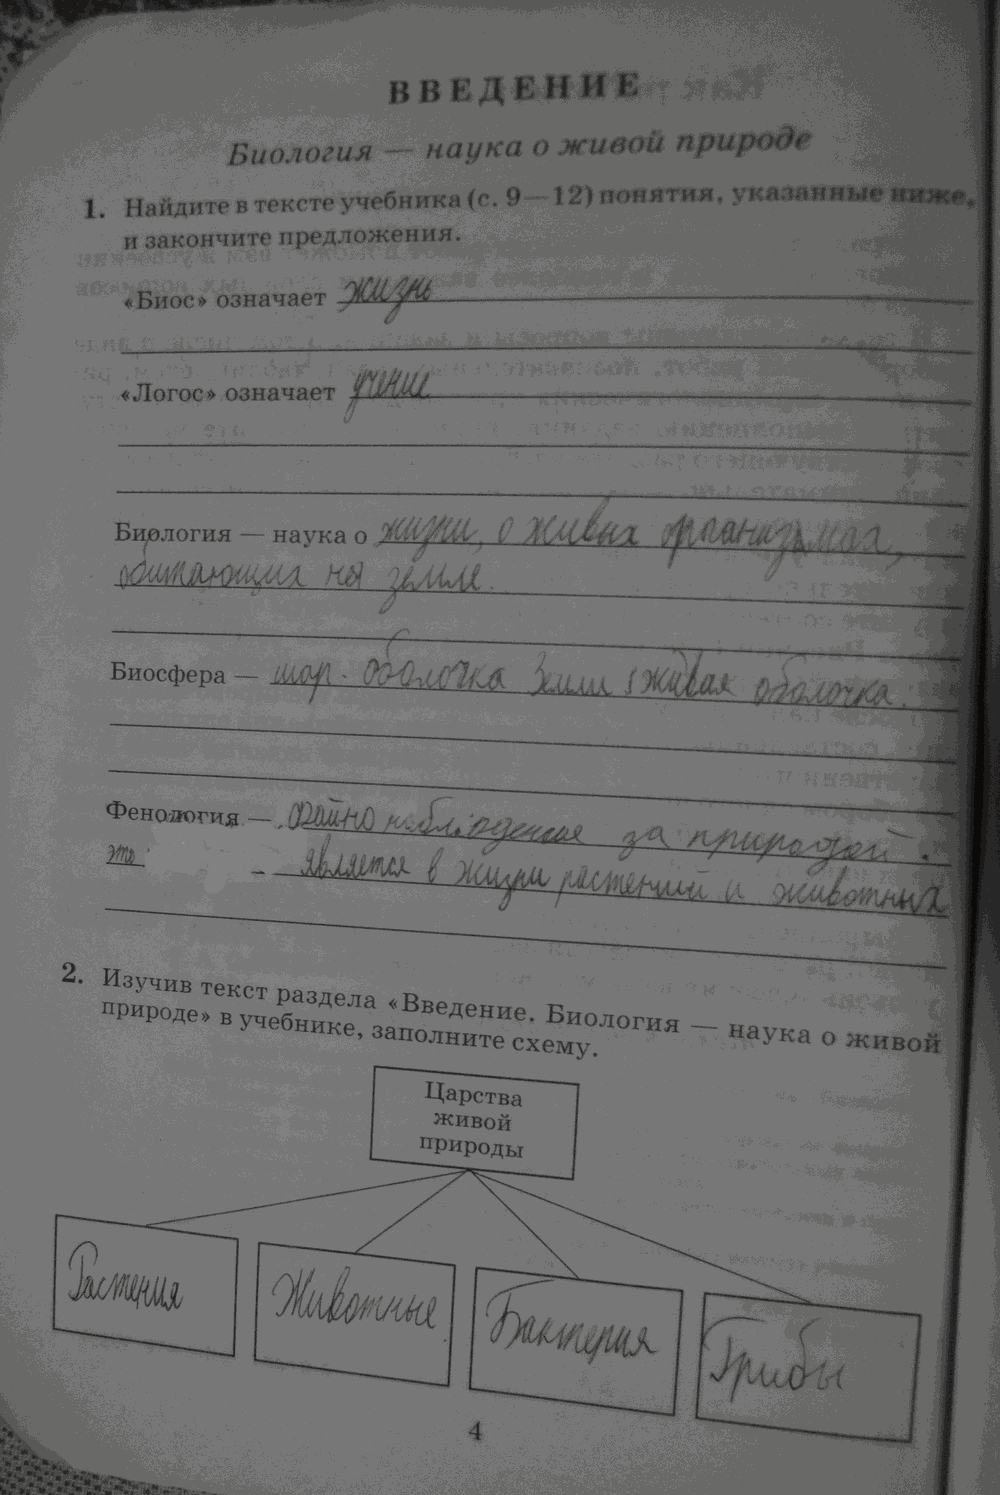 ВВЕДЕНИЕ
Биология — наука о живой природе
1. Найдите в тексте учебника (с. 9—12) понятия, указанные ниже,
и закончите предложения.
«Биос» означает жизнь
«Логос» означает учение
Биология — наука о жизни, о живых организмах,
обитающих на земле.
Биосфера — шар. оболочка Земли живая оболочка.
Фенология — наблюдение за природой.
это является в жизни растений и животных
2. Изучив текст раздела «Введение. Биология — наука о живой
природе» в учебнике, заполните схему.
Царства
живой
природы
Растения Животные Бактерия Грибы
4